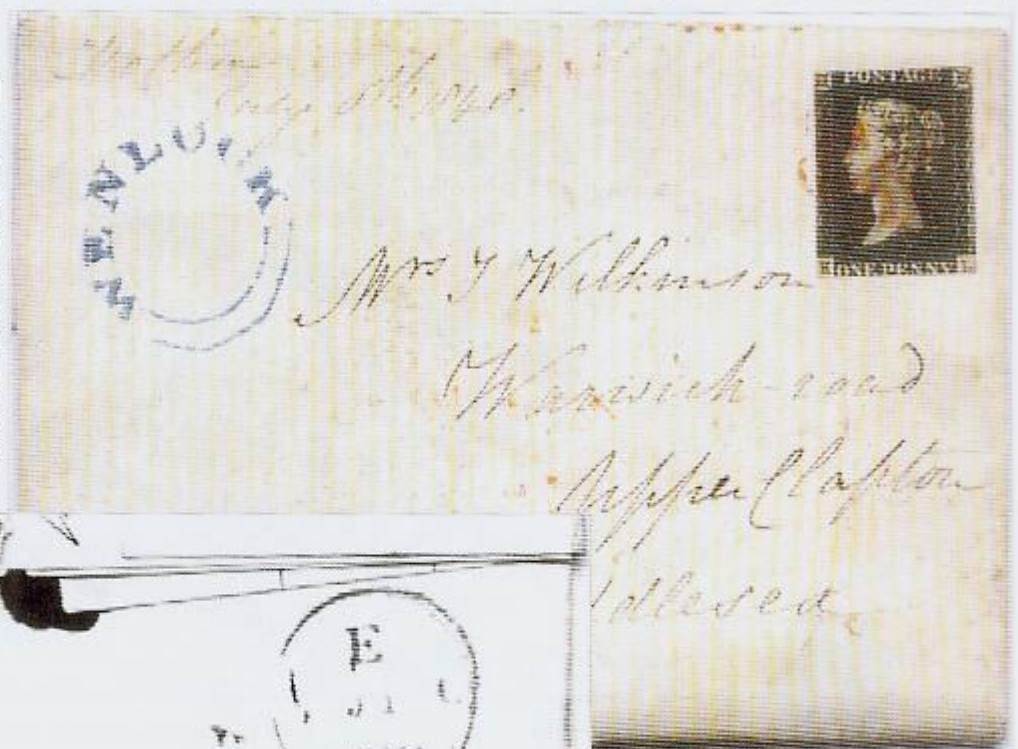 1840.
WENLOCK
POSTAGE
ONE PENNY
Mrs J Wilkinson
Warwick-road
Upper Clapton
ddlesex
E